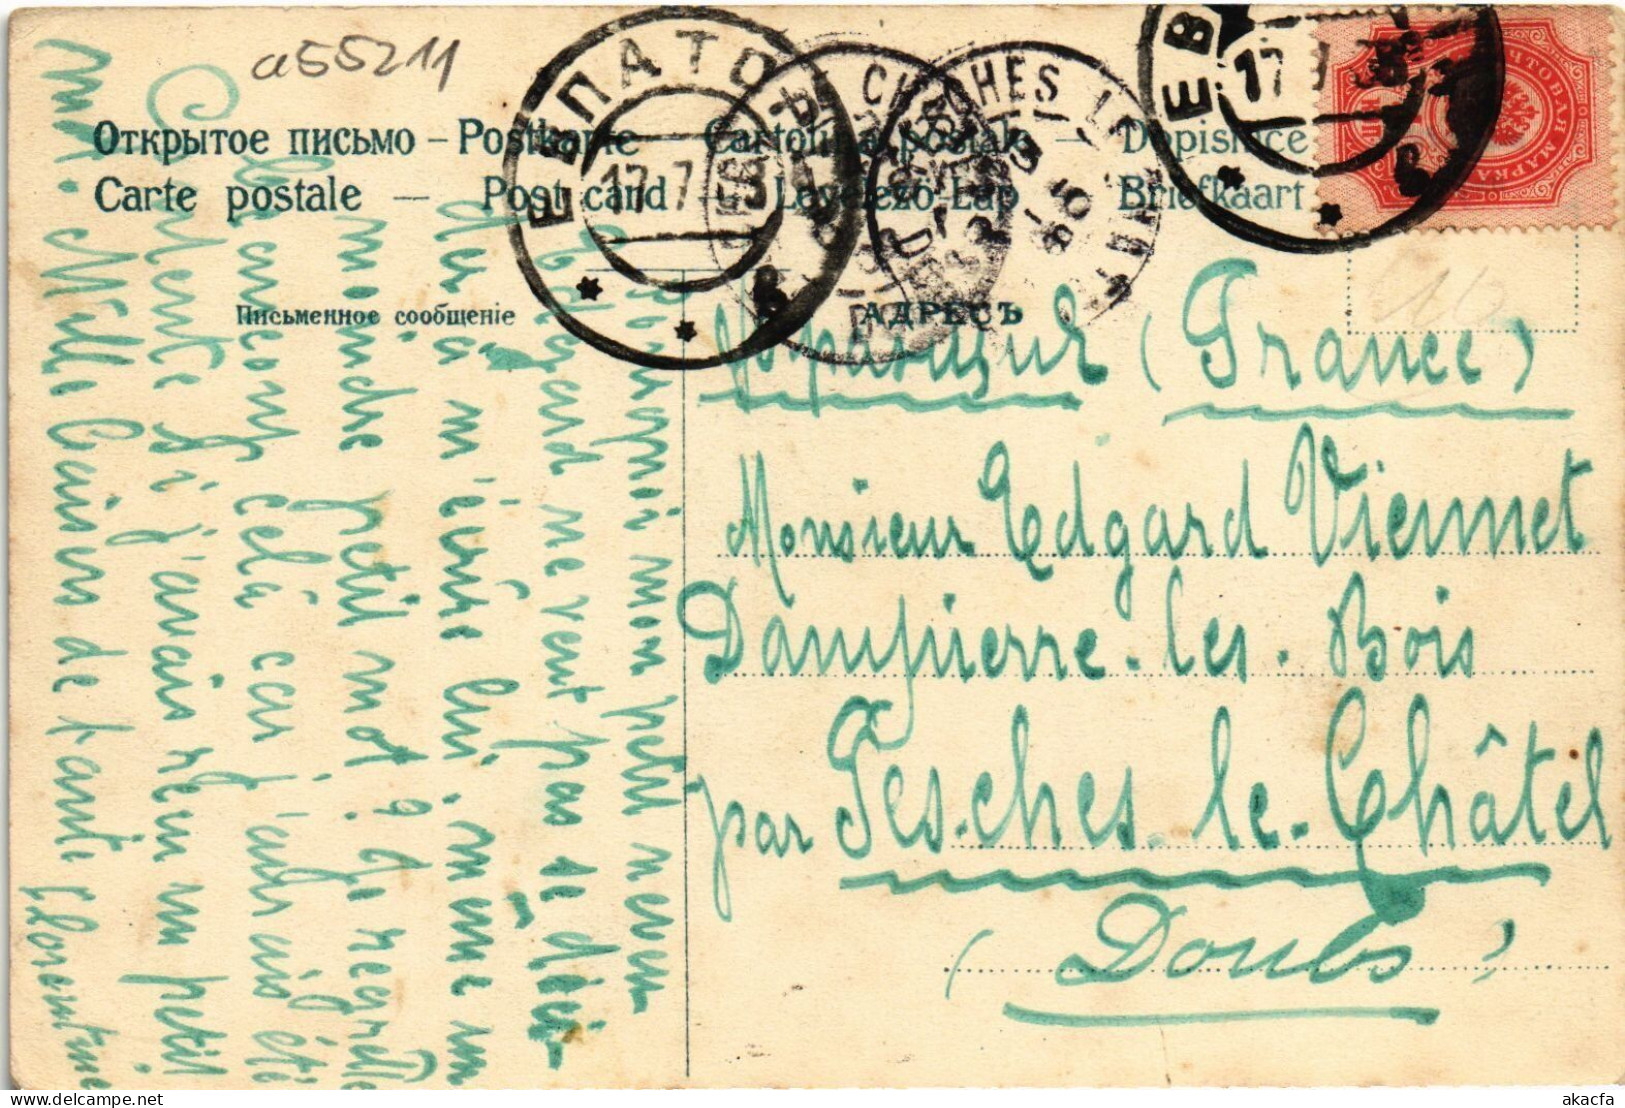 a55211
Открытое письмо – Postkarte — Cartolina postale — Dopisnice
Carte postale — Post card — Levelezö-Lap — Briefkaart
Письменное сообщеніе
АДРЕСЪ
ЕВПАТОР
17 7
CHES LE
ЕВ
17
ПОЧТОВАЯ МАРКА
(France)
Monsieur Edgard Viennet
Dampierre-les-Bois
par Fesches-le-Châtel
(Doubs)
Pourquoi mon petit neveu
Edgard ne veut pas se déci-
der à m'écrire lui-même un
moindre petit mot? Je regrette
beaucoup cela car j'aurais été
contente si j'avais reçu un petit
mot. Mille baisers de tante Florentine
akacfa delcampe.net